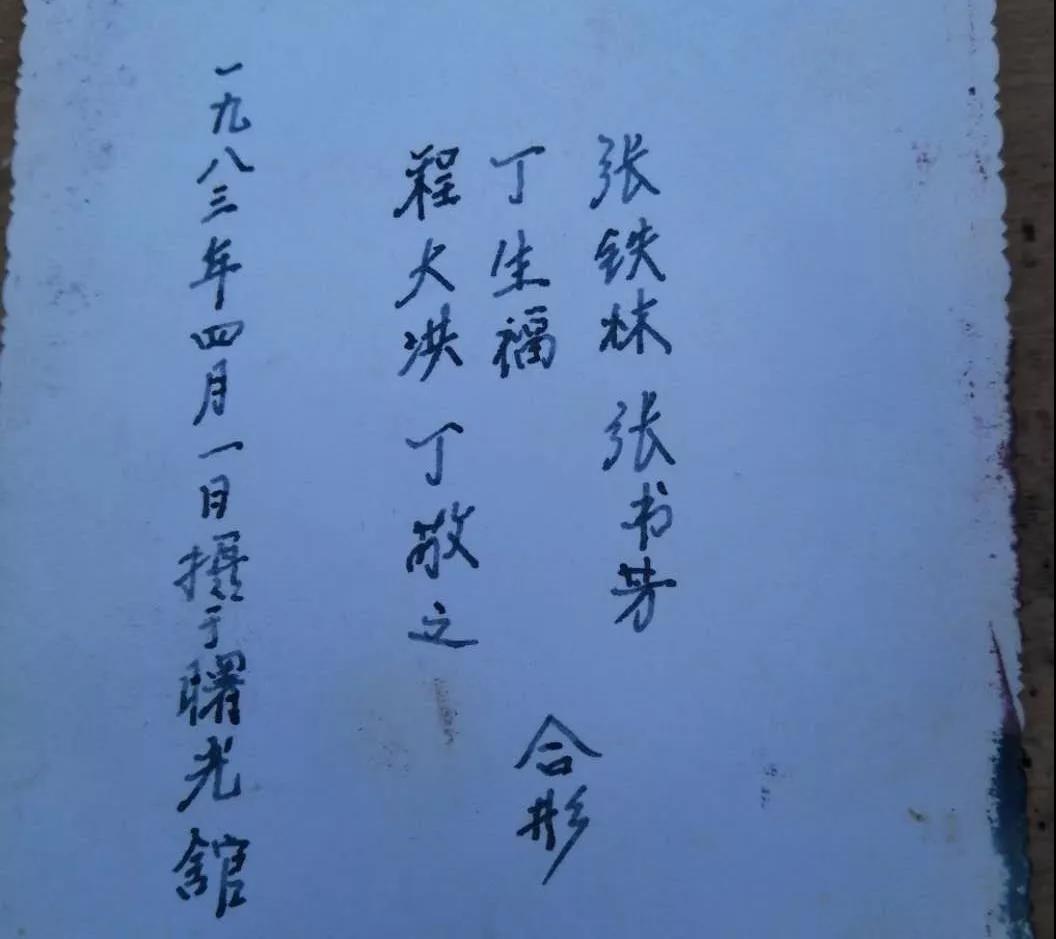 张铁 张书芳
丁生福
程大洪 丁敬之
合形
一九八三年四月一日摄于曙光舘